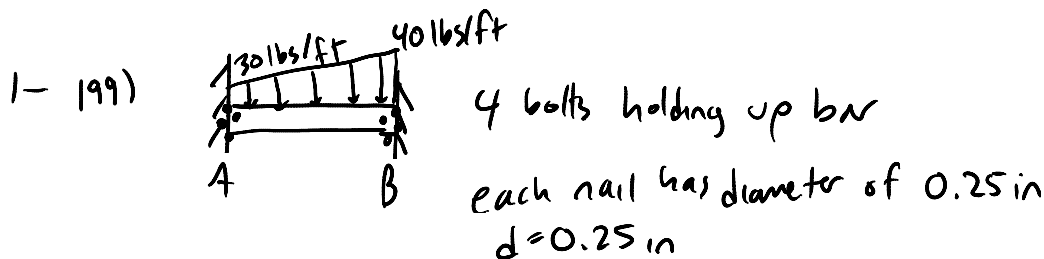 30 lbs/ft 40 lbs/ft
1- 199)
4 bolts holding up bar
A B
each nail has diameter of 0.25 in
d=0.25 in